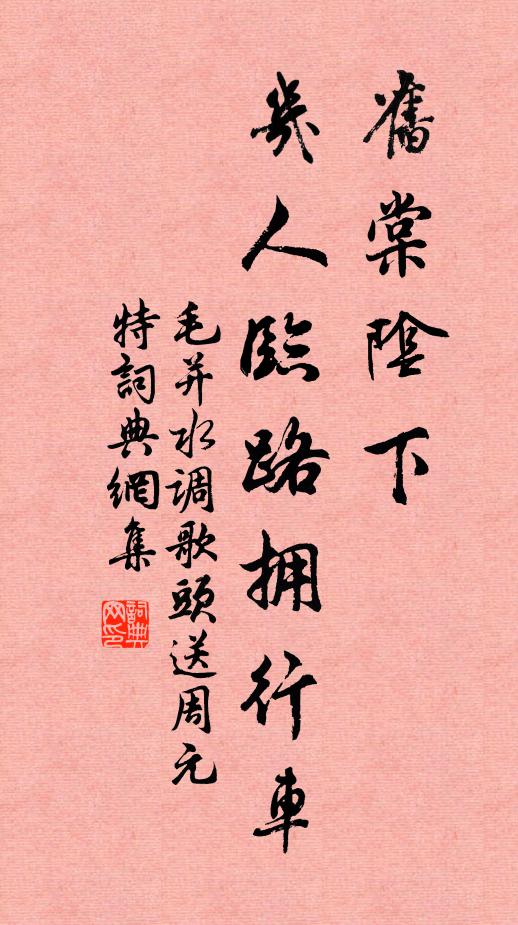 舊棠陰下
幾人臨路拥行車
毛并水调歌頭送周元
特詞典網集
詞典网印